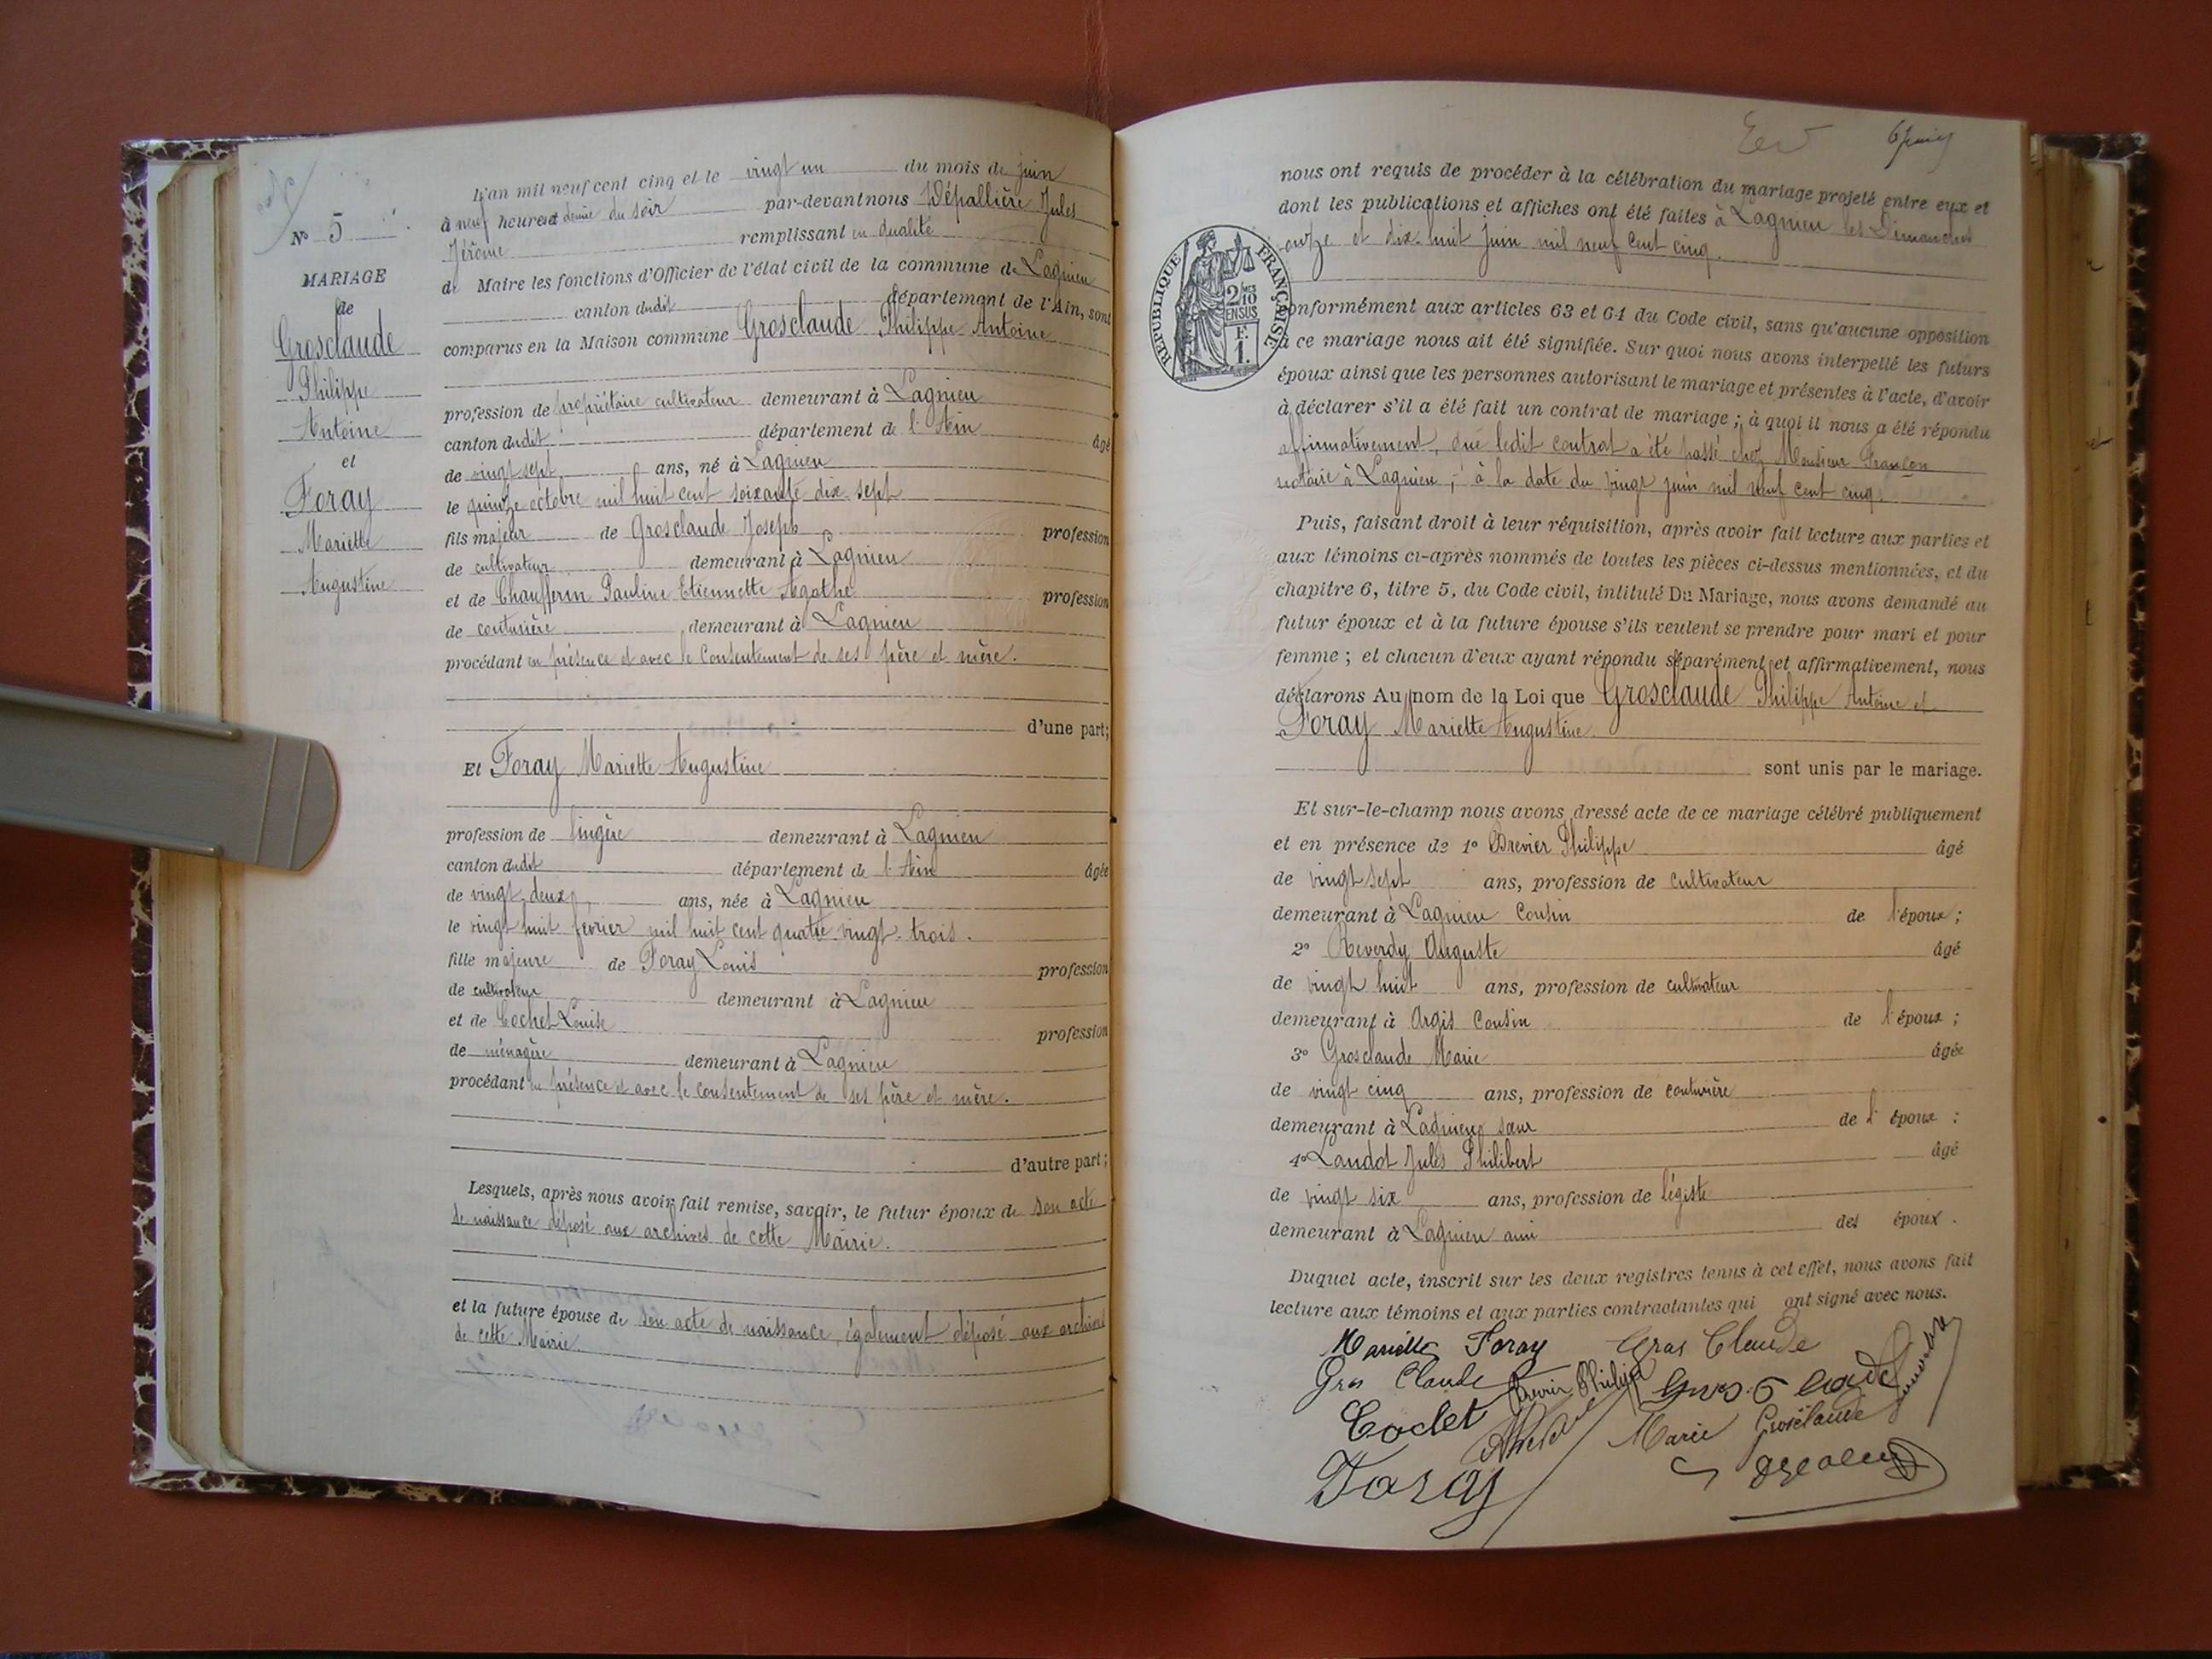 N° 5
MARIAGE
de
Grosclaude
Philippe
Antoine
et
Foray
Mariette
Augustine
L'an mil neuf cent cinq et le vingt un du mois de juin
à neuf heures et demie du soir par-devant nous Dépallière Jules
Jérôme remplissant en qualité
de Maire les fonctions d'Officier de l'état civil de la commune de Lagnieu
canton dudit département de l'Ain, sont
comparus en la Maison commune Grosclaude Philippe Antoine
profession de propriétaire cultivateur demeurant à Lagnieu
canton dudit département de l'Ain âgé
de vingt sept ans, né à Lagnieu
le quinze octobre mil huit cent soixante dix-sept
fils majeur de Grosclaude Joseph profession
de cultivateur demeurant à Lagnieu
et de Chaufferin Pauline Etiennette Agathe profession
de couturière demeurant à Lagnieu
procédant en présence et avec le consentement de ses père et mère.
d'une part;
Et Foray Mariette Augustine
profession de lingère demeurant à Lagnieu
canton dudit département de l'Ain âgée
de vingt-deux ans, née à Lagnieu
le vingt huit fevrier mil huit cent quatre-vingt-trois.
fille majeure de Foray Louis profession
de cultivateur demeurant à Lagnieu
et de Cochet Louise profession
de ménagère demeurant à Lagnieu
procédant en présence et avec le consentement de ses père et mère.
d'autre part;
Lesquels, après nous avoir fait remise, savoir, le futur époux de son acte
de naissance déposé aux archives de cette Mairie.
et la future épouse de son acte de naissance, également déposé aux archives
de cette Mairie.
6 juin
nous ont requis de procéder à la célébration du mariage projeté entre eux et
dont les publications et affiches ont été faites à Lagnieu les Dimanches
onze et dix-huit juin mil neuf cent cinq.
RÉPUBLIQUE FRANÇAISE
2/10
EN SUS
F.
1.
onformément aux articles 63 et 64 du Code civil, sans qu'aucune opposition
à ce mariage nous ait été signifiée. Sur quoi nous avons interpellé les futurs
époux ainsi que les personnes autorisant le mariage et présentes à l'acte, d'avoir
à déclarer s'il a été fait un contrat de mariage; à quoi il nous a été répondu
affirmativement, que ledit contrat a été passé chez Monsieur Françon
notaire à Lagnieu, à la date du vingt juin mil neuf cent cinq.
Puis, faisant droit à leur réquisition, après avoir fait lecture aux parties et
aux témoins ci-après nommés de toutes les pièces ci-dessus mentionnées, et du
chapitre 6, titre 5, du Code civil, intitulé Du Mariage, nous avons demandé au
futur époux et à la future épouse s'ils veulent se prendre pour mari et pour
femme; et chacun d'eux ayant répondu séparément et affirmativement, nous
déclarons Au nom de la Loi que Grosclaude Philippe Antoine et
Foray Mariette Augustine
sont unis par le mariage.
Et sur-le-champ nous avons dressé acte de ce mariage célébré publiquement
et en présence de 1° Brevier Philippe âgé
de vingt sept ans, profession de cultivateur
demeurant à Lagnieu Cousin de l'époux;
2° Reverdy Auguste âgé
de vingt huit ans, profession de cultivateur
demeurant à Argis Cousin de l'époux;
3° Grosclaude Marie âgée
de vingt cinq ans, profession de couturière
demeurant à Lagnieu sœur de l'époux;
4° Landot Jules Philibert âgé
de vingt six ans, profession de légiste
demeurant à Lagnieu ami des époux.
Duquel acte, inscrit sur les deux registres tenus à cet effet, nous avons fait
lecture aux témoins et aux parties contractantes qui ont signé avec nous.
Mariette Foray Gros Claude
Gros Claude Brevier Philippe Gros Claude
Cochet Marie Grosclaude
Foray